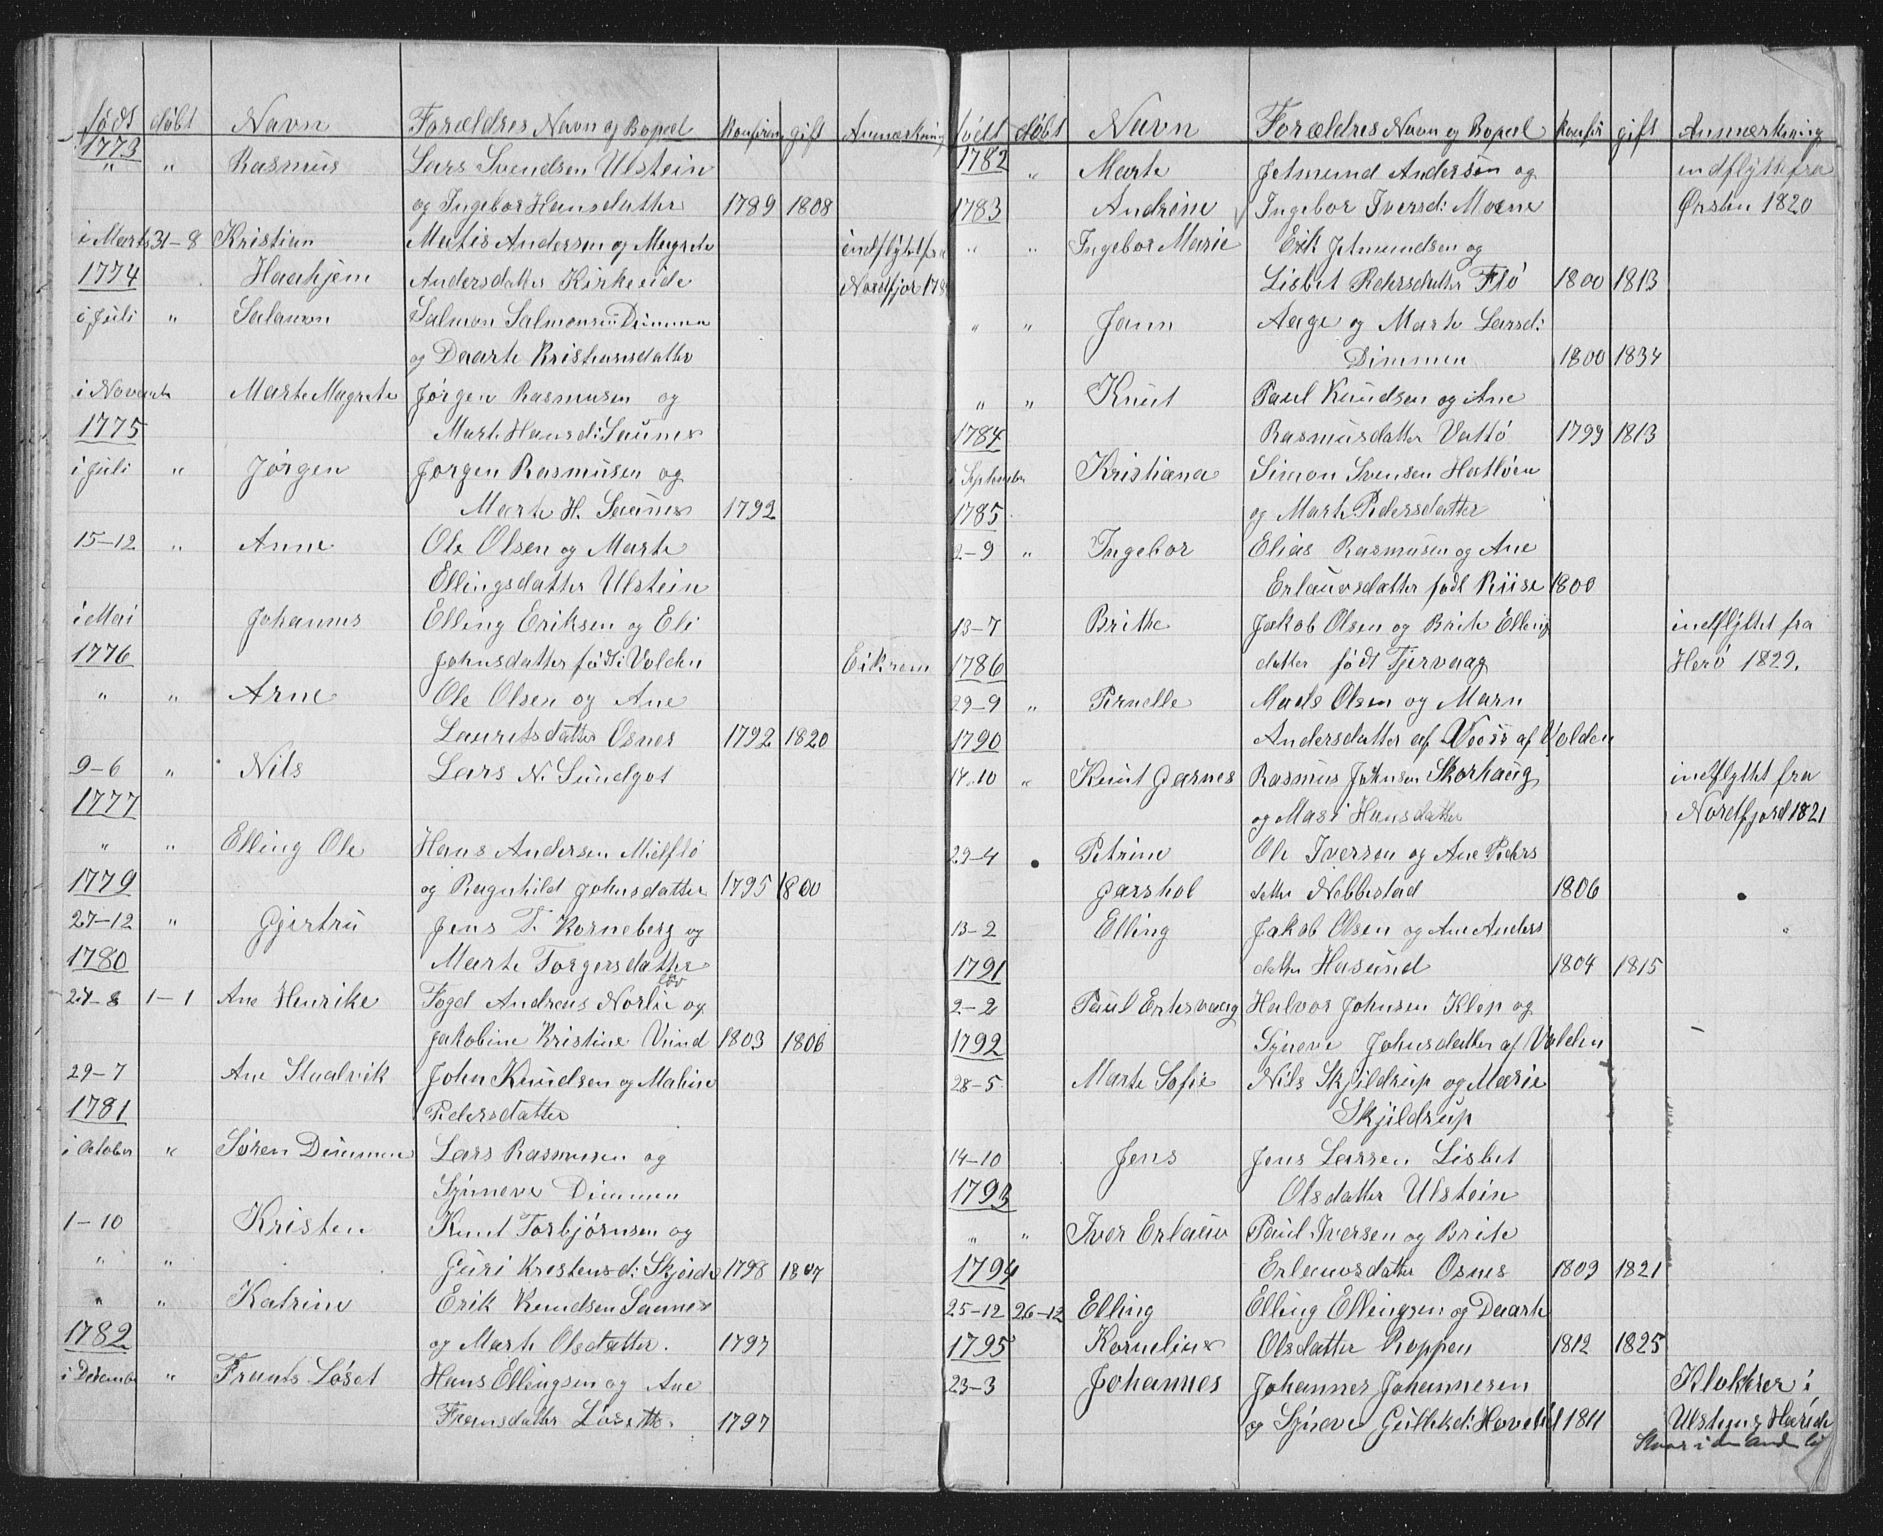 født døbt Navn Forældres Navn og Bopæl Konfirm gift Anmærkning
1773
" " Rasmus Lars Svendsen Ulstein
og Ingebor Hansdatter 1789 1808
i Marts 31-8 Kristian Matis Andersen og Magrete indflytet fra
1774 Haahjem Andersdatter Kirkeeide Nordfjor 178
i Juli " Salamon Salmon Salmonsen Dimmen
og Daarte Kristiansdatter
i Novemb Marte Magrete Jørgen Rasmusen og
1775 Marte Hansd: Saunes
i Juli " Jørgen Jørgen Rasmusen og
Marte H. Saunes 1792
15-12 " Anne Ole Olsen og Marte
Ellingsdatter Ulstein
i Mai Johannes Elling Eriksen og Eli
1776 Johnsdatter født i Volden Eikrem
" " Arne Ole Olsen og Ane
Lauritsdatter Osnes 1792 1820
9-6 " Nils Lars N. Sundgot
1777
" " Elling Ole Hans Andersen Mielflø
1779 og Ragnhild Johnsdatter 1795 1800
27-12 " Gjertru Jens T. Korneberg og
1780 Marte Torgersdatter
27-8 1-1 Ane Henrike Fogd Andreas Norlie og
Jakobine Kristine Vind 1803 1806
29-7 Ane Staalvik John Knudsen og Malene
1781 Pedersdatter
i October " Søren Dimmen Lars Rasmusen og
Synneve Dimmen
1-10 Kristen Knut Torbjørnsen og
" " Guri Krestensd: Skjeide 1798 1807
" " Katrine Erik Knudsen Saunes
1782 og Marte Olsdatter. 1797
i Desember " Frants Løset Hans Ellingsen og Ane
Fransdatter Løset 1797
født døbt Navn Forældres Navn og Bopæl Konfir gift Anmærkning
1782 " Marte Jetmund Andersen og indflytte fra
1783 Andrine Ingebor Iversd: Moene Ørsten 1820
" " Ingebor Marie Erik Jetmundsen og
Lisbet Pedersdatter Flø 1800 1813
" " Jann Aage og Marte Larsd:
Dimmen 1800 1834
" " Knut Paul Knudsen og Ane
1784 Rasmusdatter Vattø 1799 1813
i September Kristiana Simon Svensen Hatløen
1785 og Marte Pedersdatter
2-9 " Ingebor Elias Rasmusen og Ane
Erlauvsdatter født Riise 1800
13-7 Brithe Jakob Olsen og Brite Elling indflyttet fra
1786 datter født Tjervaag Herø 1829.
29-9 " Pernelle Mads Olsen og Marn
1790 Andersdatter af Voss af Volden
17-10 " Knut Garnes Rasmus Johnsen Skorhaug indflyttet fra
og Masi Hansdatter Nordfjord 1821
29-4 Petrine Ole Iversen og Ane Peders
Garshol datter Nebbestad 1806
13-2 Elling Jakob Olsen og Ane Anders
1791 datter Hasund 1804 1815
2-2 Paul Erksvaag Halvor Johnsen Klep og
1792 Synneve Johnsdatter af Volden
28-5 Marte Sofie Nils Skjildrup og Marie
Skjildrup
14-10 Jens Jens Larsen Lisbet
1793 Olsdatter Ulstein
" " Iver Erlauv Paul Iversen og Brite
1794 Erlauvsdatter Osnes 1809 1821
25-12 26-12 Elling Elling Ellingsen og Daarte
1795 Kornelius Olsdatter Roppen 1812 1825
23-3 Johannes Johannes Johannesen Klokker i
og Synneve Gullikd: Hovelid 1811 Ulsten og Hareide